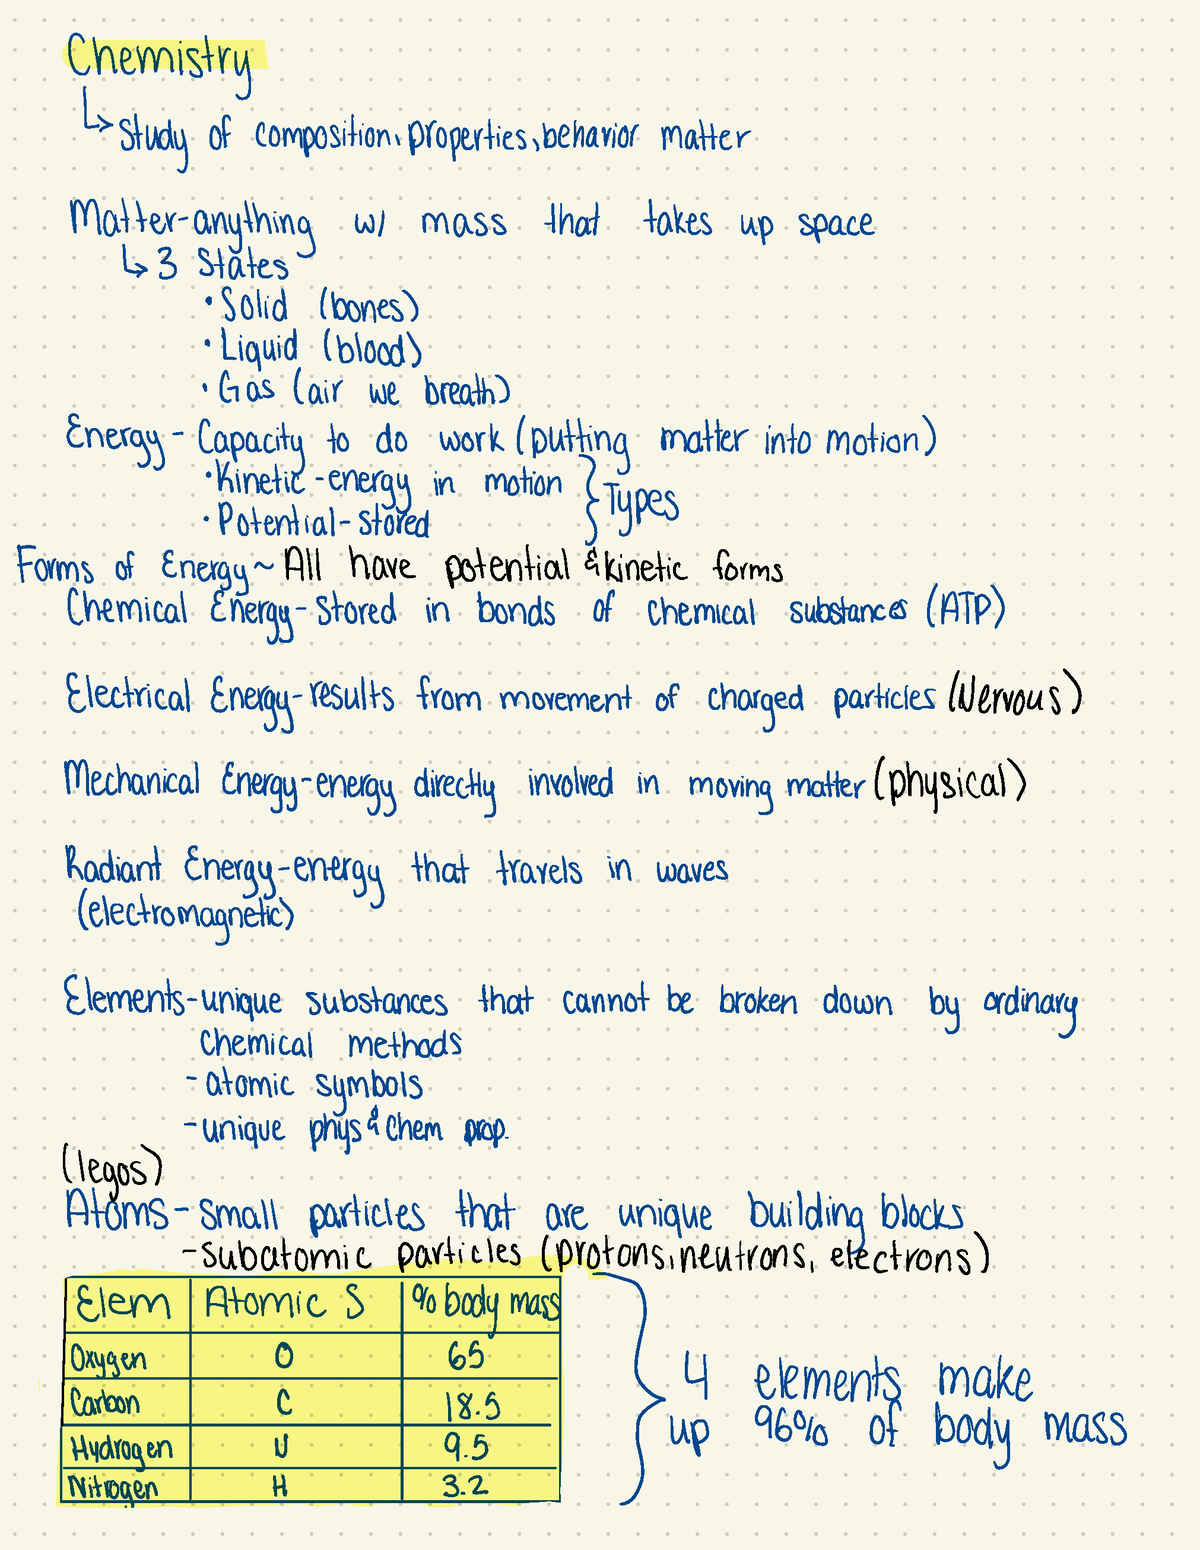 Chemistry
↳ Study of composition, properties, behavior matter
Matter-anything w/ mass that takes up space
↳ 3 States
• Solid (bones)
• Liquid (blood)
• Gas (air we breath)
Energy - Capacity to do work (putting matter into motion)
• Kinetic - energy in motion } Types
• Potential - Stored
Forms of Energy ~ All have potential & kinetic forms
Chemical Energy - Stored in bonds of chemical substances (ATP)
Electrical Energy - results from movement of charged particles (Nervous)
Mechanical Energy - energy directly involved in moving matter (physical)
Radiant Energy - energy that travels in waves
(electromagnetic)
Elements - unique substances that cannot be broken down by ordinary
Chemical methods
- atomic symbols
- unique phys & Chem prop.
(legos)
Atoms - Small particles that are unique building blocks
- subatomic particles (protons, neutrons, electrons)
Elem Atomic S % body mass
Oxygen O 65
Carbon C 18.5
Hydrogen N 9.5
Nitrogen H 3.2
4 elements make
up 96% of body mass